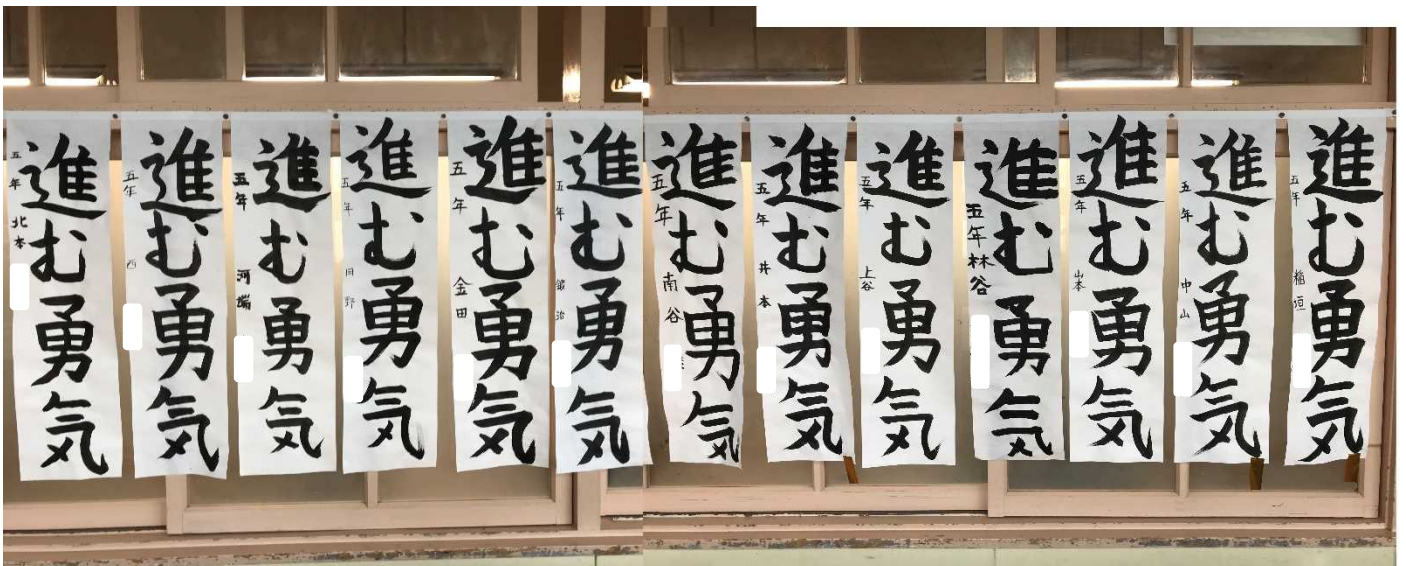 進む勇気
五年 北本
進む勇気
五年 西
進む勇気
五年 河端
進む勇気
五年
進む勇気
五年 金田
進む勇気
五年
進む勇気
五年 南谷
進む勇気
五年 井本
進む勇気
五年 上谷
進む勇気
五年 林谷
進む勇気
五年 山本
進む勇気
五年 中山
進む勇気
五年 稲垣